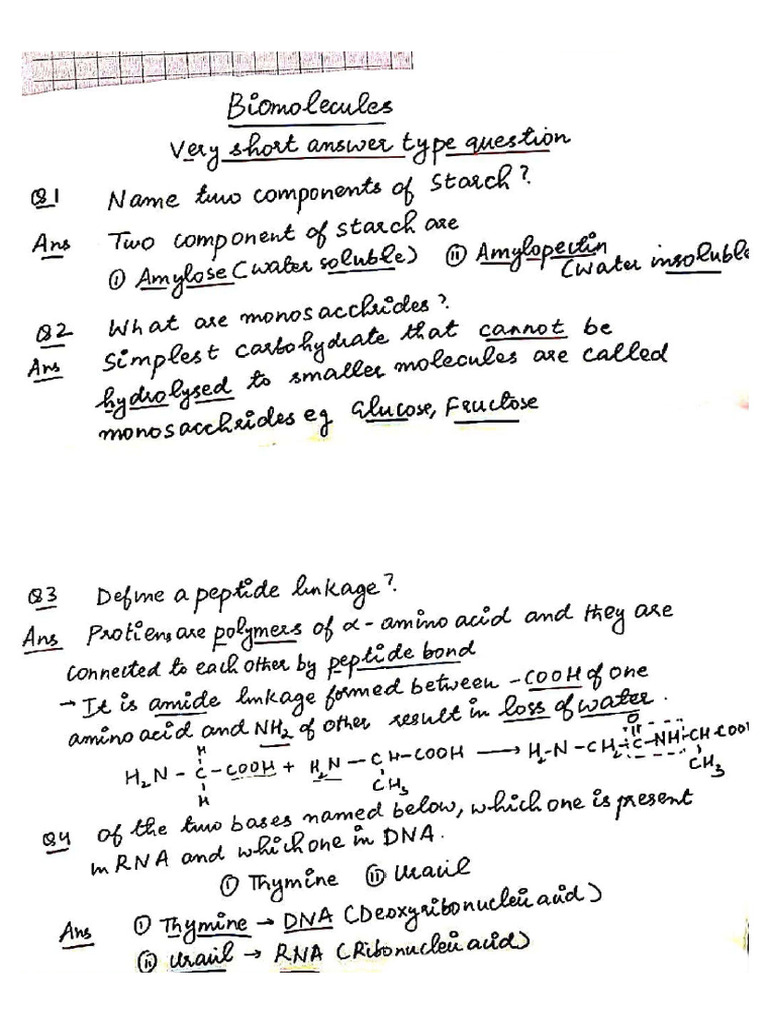 Biomolecules
Very short answer type question
Q1 Name two components of Starch?
Ans Two component of starch are
(i) Amylose (water soluble) (ii) Amylopectin
(water insoluble
Q2 What are monosacchrides?
Ans Simplest carbohydrate that cannot be
hydrolysed to smaller molecules are called
monosacchrides eg Glucose, Fructose
Q3 Define a peptide linkage?
Ans Protiens are polymers of α-amino acid and they are
connected to each other by peptide bond
→ It is amide linkage formed between -COOH of one
amino acid and NH2 of other result in loss of water.
H O
H2N - C - COOH + H2N - CH-COOH → H2N - CH2 - C - NH - CH-COOH
H CH3 CH3
Q4 Of the two bases named below, which one is present
in RNA and which one in DNA.
(i) Thymine (ii) Uracil
Ans (i) Thymine → DNA (Deoxyribonucleic acid)
(ii) Uracil → RNA (Ribonucleic acid)